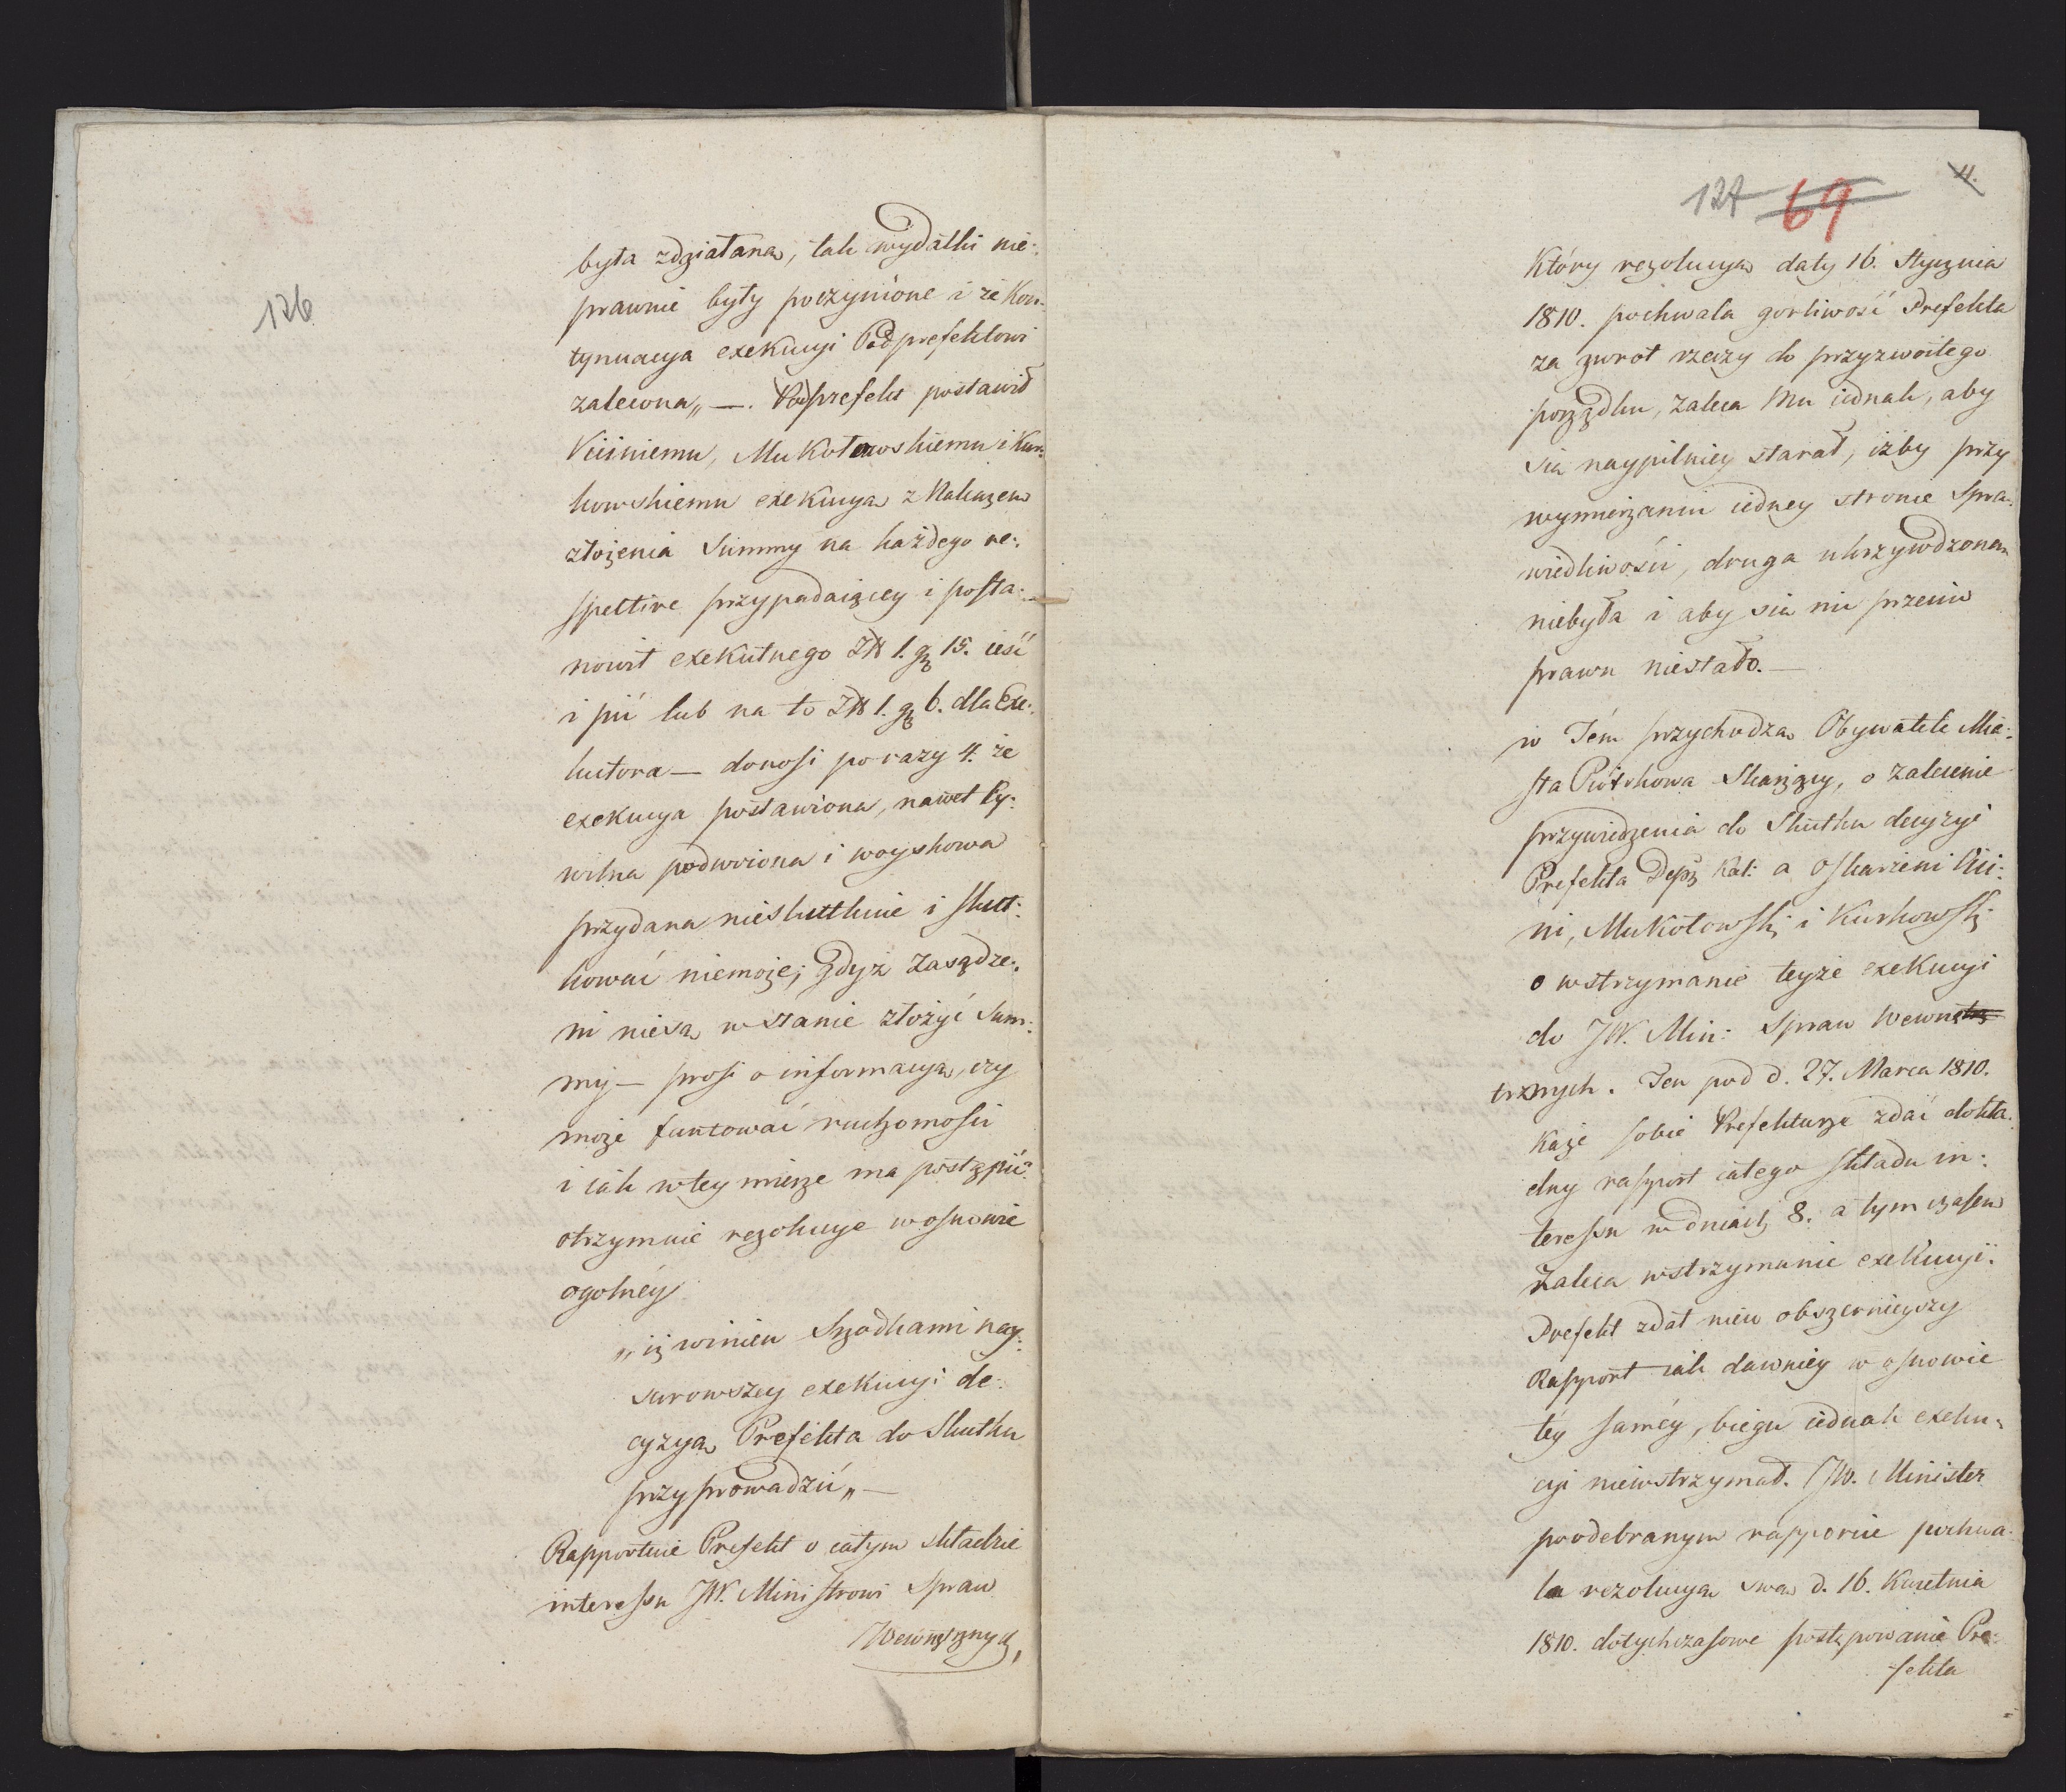 126
była zdziałana, tak wydatki nie:
prawnie były poczynione i że Kon:
tynuacya exekucyi Podprefektowi
zalecona„ —. Podprefekt postawił
Kiiśniemu, Mukułowskiemu i Kur:
kowskiemu exekucyą z Nakazem
złożenia Summy na każdego re:
spective przypadaiącey i posta:
nowił exekutnego Zł 1. gz 15. ieść
i pić lub na to Zł 1. gz 6. dla Exe:
kutora — donosi po razy 4. że
exekucya postawiona, nawet Cy:
wilna podwoiona i woyskowa
przydana nieskutkuie i skut:
kować niemoże; gdyż Zasądze:
ni niesą w stanie złożyć Sum:
my — prosi o informacyą, czy
może fantować ruchomości
i iak w tey mierze ma postąpić?
otrzymuie rezolucye w osnowie
ogolnéy
„iż winien Srzodkami nay:
surowszey exekucyi de:
cyzyą Prefekta do Skutku
przyprowadzić„ —
Rapportuie Prefekt o całym składzie
interessu JW. Ministrowi Spraw
Wewnętrznych,
127 69 4.
Który rezolucyą daty 16. Stycznia
1810. pochwala gorliwość Prefekta
za zwrot rzeczy do przyzwoitego
porządku, Zaleca Mu iednak, aby
się naypilniey starał, iżby przy
wymierzaniu iedney stronie Spra:
wiedliwości, druga ukrzywdzoną
niebyła i aby się nic przeciw
prawu niestało. —
w Tém przychodzą Obywatele Mia:
sta Piotrkowa Skarżący, o Zalecenie
przywiedzenia do Skutku decyzyi
Prefekta Depę Kal: a Oskarżeni Kii:
ni, Mukułowski i Kurkowski
o wstrzymanie teyże exekucyi
do JW. Min: Spraw Wewnętrz
trznych. Ten pod d. 27. Marca 1810.
Każe sobie Prefekturze zdać dokła:
dny rapport całego składu in:
teressu w dniach 8. a tym czasem
Zaleca wstrzymanie exekucyi.
Prefekt zdał nieu obszernieyszy
Rapport iak dawniey w osnowie
téy saméy, biegu iednak exeku:
cyi niewstrzymał. JW. Minister
poodebranym rapporcie pochwa:
la rezolucyą swą d. 16. Kwietnia
1810. dotychczasowe postępowanie Pre:
fekta